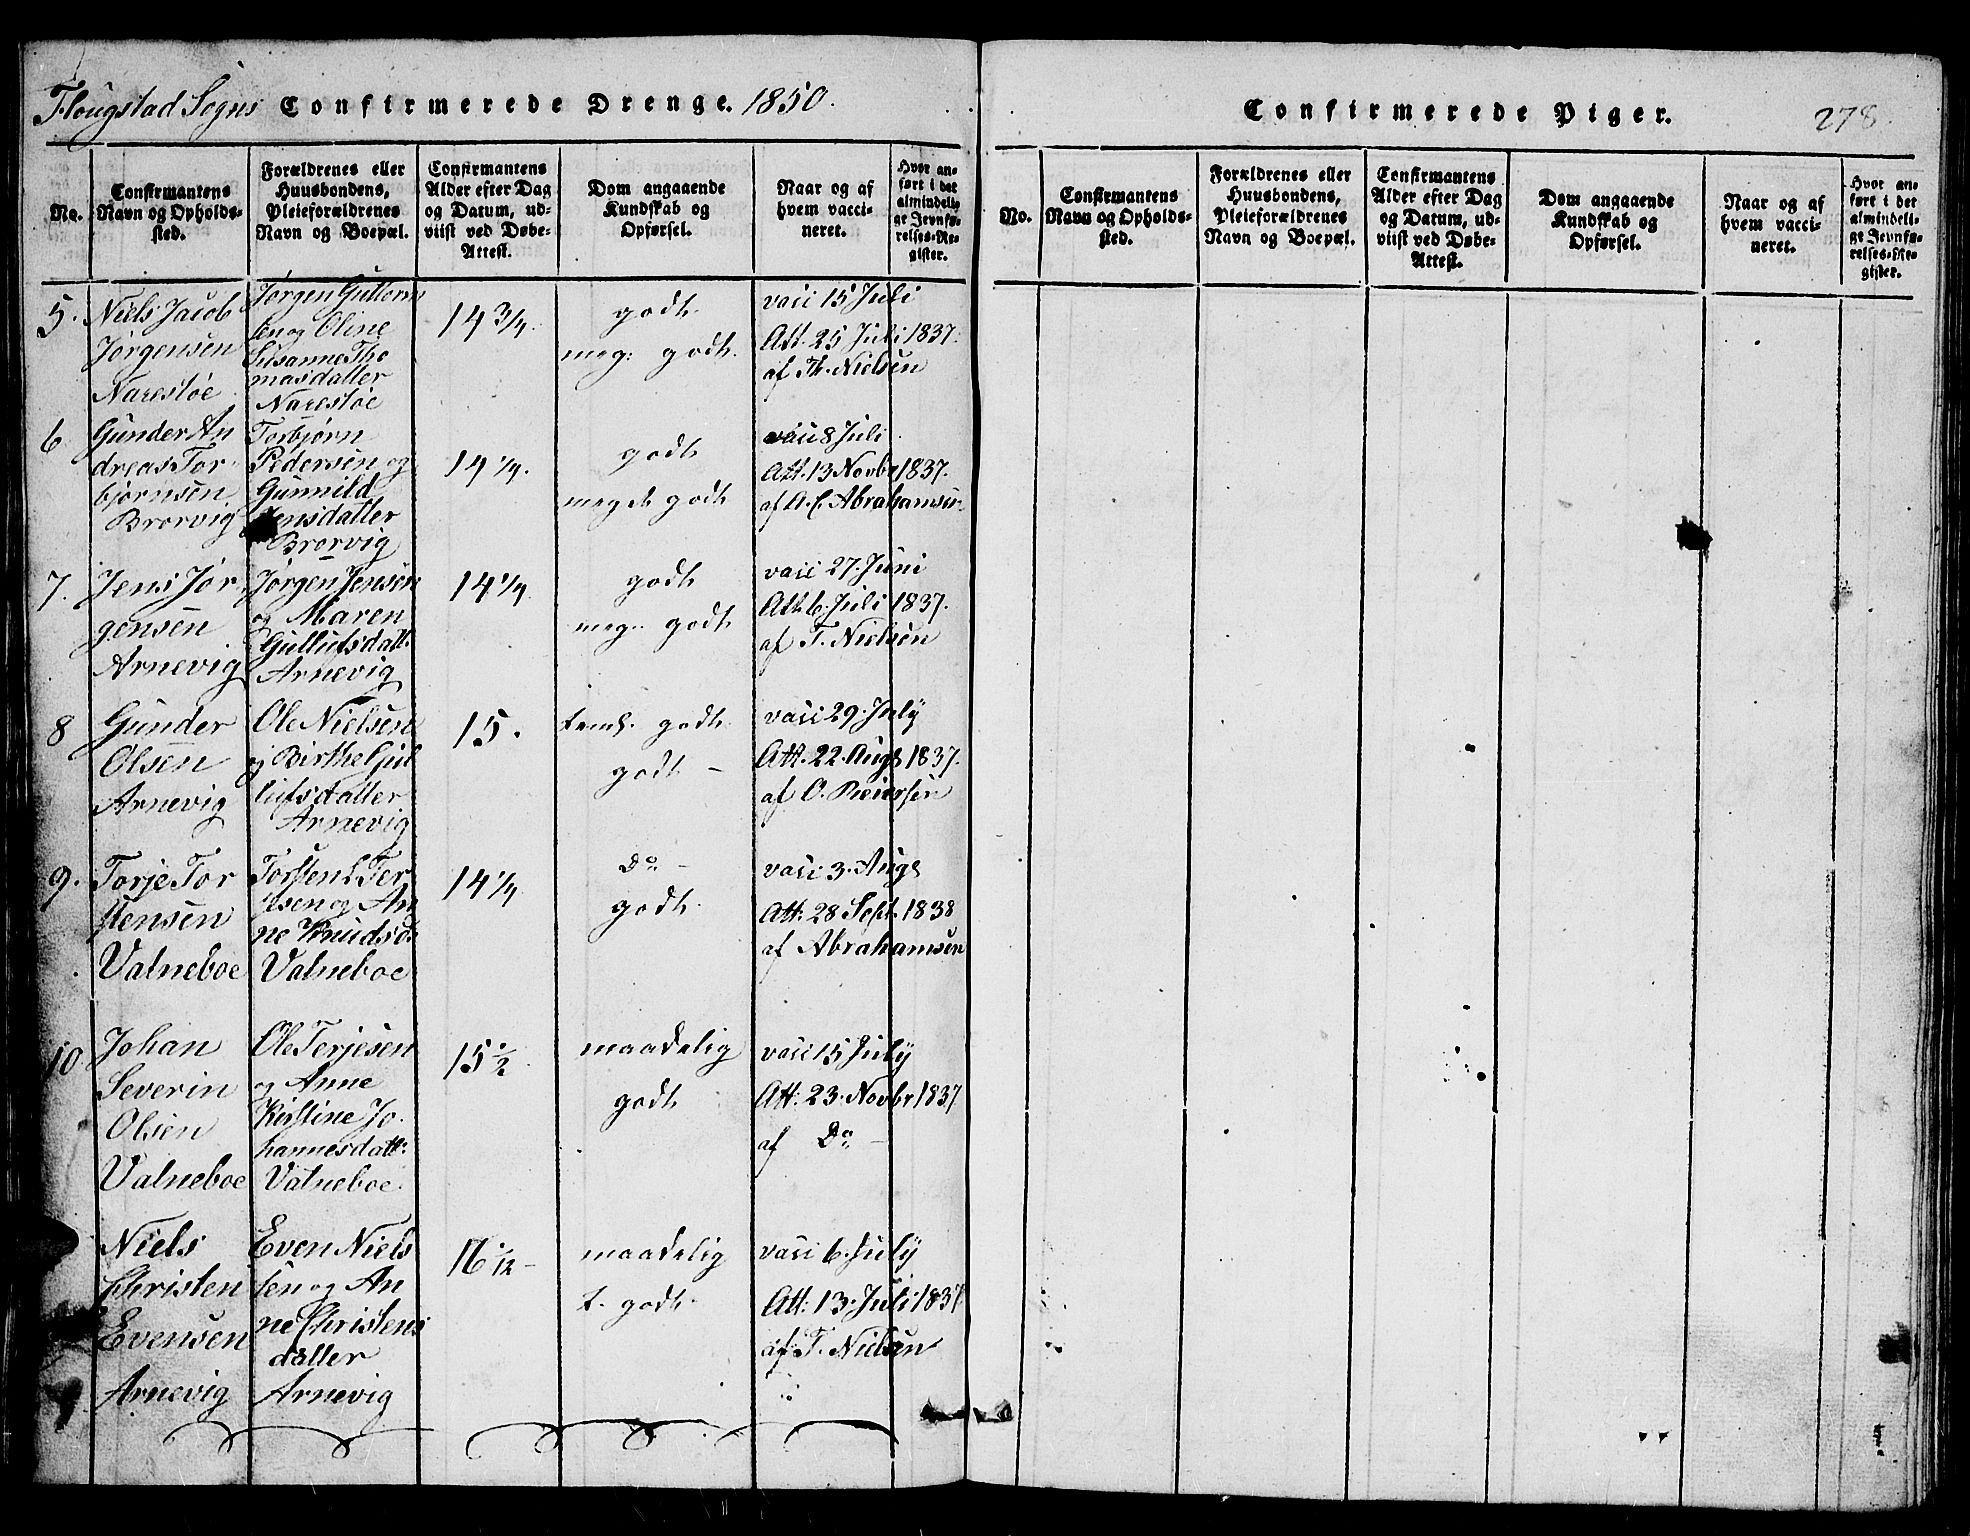 Flougstad Sogns Confirmerede Drenge. 1850.
No.
Confirmantens
Navn og Opholds-
sted.
Forældrenes eller
Huusbondens,
Pleieforældrenes
Navn og Boepæl.
Confirmantens
Alder efter Dag
og Datum, ud-
viist ved Døbe-
Attest.
Dom angaaende
Kundskab og
Opførsel.
Naar og af
hvem vacci-
neret.
Hvor an-
ført i det
almindeli-
ge Jevnfø-
relses-Re-
gister.
5.
Niels Jacob
Jørgensen
Narestøe
Jørgen Guttorm
sen og Oline
Susanne Tho
masdatter
Narestøe
14 3/4.
godt
meg: godt.
vacc 15 Juli
Att. 25 Juli 1837.
af Th. Nielsen
6
Gunder An
dreas Tor
bjørnsen
Brorvig
Torbjørn
Pedersen og
Gunnild
Jensdatter
Brorvig
14 1/4.
godt
meget godt
vacc 8 Juli
Att. 13 Novbr 1837.
af A. C. Abrahamsen
7.
Jens Jør
gensen
Arnevig
Jørgen Jensen
og Maren
Gullufsdatt.
Arnevig
14 1/4
godt
meg. godt
vacc 27. Juni
Att. 6. Juli 1837.
af T. Nielsen
8
Gunder
Olsen
Arnevig
Ole Nielsen
og Birthe Gul
lufsdatter
Arnevig
15.
teml. godt
godt -
vacc 29. July
Att. 22. Augs 1837.
af O. Reiersen
9.
Torje Tor
stensen
Valneboe
Torsten Ter
jesen og An
ne Knudsd.
Valneboe
14 1/4
Do -
godt.
vacc 3. Augs
Att: 28 Sept. 1838
af Abrahamsen
10
Johan
Severin
Olsen
Valneboe
Ole Terjesen
og Anne
Kirstine Jo
hannesdatt:
Valneboe.
15 1/2
maadelig
godt
vacc 15 July
Att: 23. Novbr 1837
af Do -
Niels
Christen
Evensen
Arnevig
Even Niels
sen og An
ne Christens
datter
Arnevig
16 1/12 -
maadelig
t. godt.
vacc 6. July
Att: 13. Juli 1837.
af T. Nielsen
Confirmerede Piger.
278.
No.
Confirmantens
Navn og Opholds-
sted.
Forældrenes eller
Huusbondens,
Pleieforældrenes
Navn og Boepæl.
Confirmantens
Alder efter Dag
og Datum, ud-
viist ved Døbe-
Attest.
Dom angaaende
Kundskab og
Opførsel.
Naar og af
hvem vacci-
neret.
Hvor an-
ført i det
almindeli-
ge Jevnfø-
relses-Re-
gister.